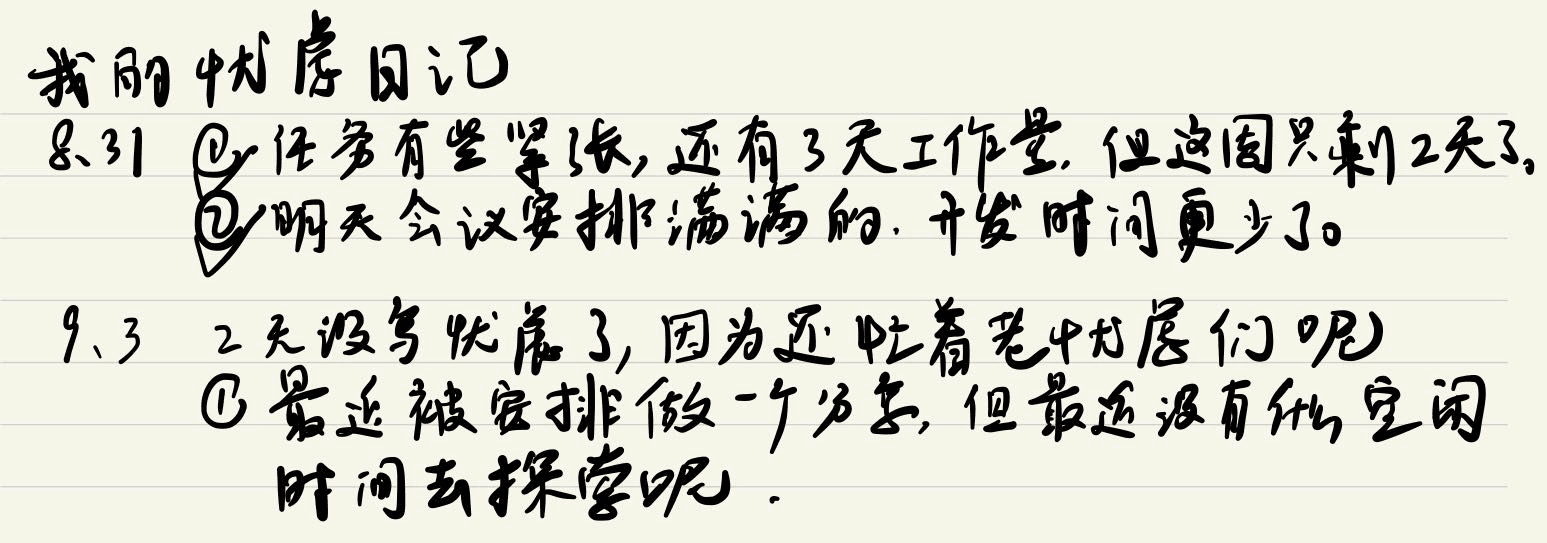 我的忧虑日记
8、31 ① 任务有些紧张,还有3天工作量.但这周只剩2天了。
② 明天会议安排满满的.开发时间更少了。
9、3 2天没写忧虑了,因为还忙着老忧虑们呢
① 最近被安排做一个方案,但最近没有什么空闲
时间去探索呢.